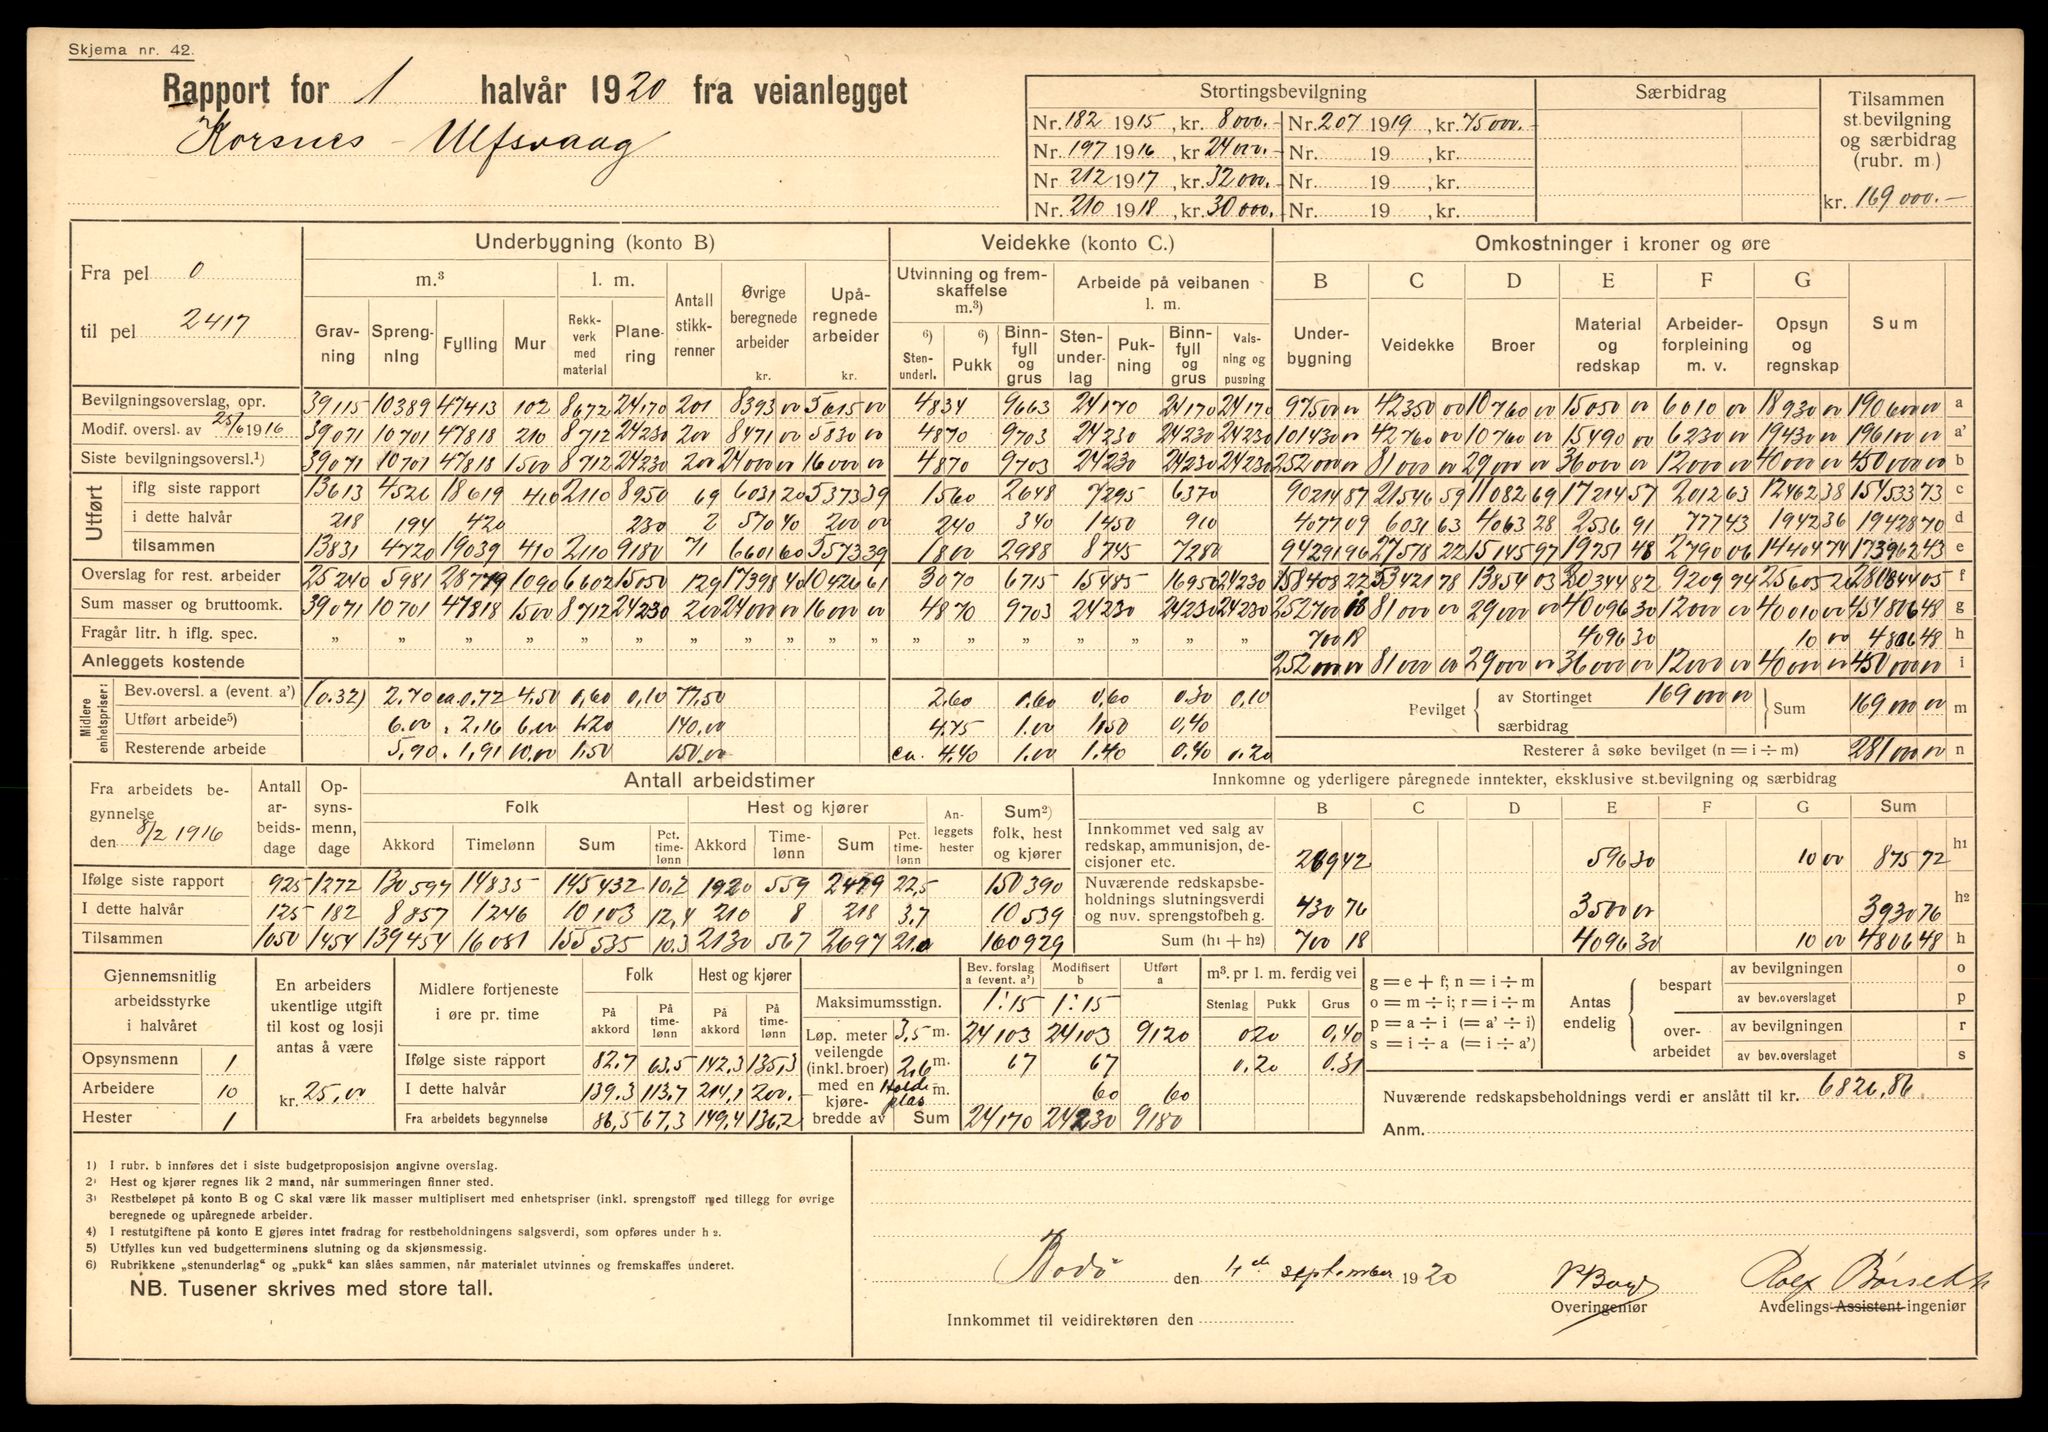 Skjema nr. 42.
Rapport for 1 halvår 1920 fra veianlegget
Korsnes - Ulfsvaag
Stortingsbevilgning
Særbidrag
Tilsammen st.bevilgning og særbidrag (rubr. m)
kr. 169 000.-
Nr. 182 1915, kr. 8000.- Nr. 207 1919, kr. 75000.-
Nr. 197 1916, kr 24000.- Nr. 19 , kr.
Nr 212 1917, kr. 32000.- Nr. 19 , kr.
Nr. 210 1918, kr. 30000.- Nr. 19 , kr.
Fra pel 0
til pel 2417
Underbygning (konto B)
Veidekke (konto C.)
Omkostninger i kroner og øre
m.³ l. m. Antall stikkrenner Øvrige beregnede arbeider kr. Upåregnede arbeider kr.
Utvinning og fremskaffelse m.³) Arbeide på veibanen l. m.
B C D E F G
Gravning Sprengning Fylling Mur Rekkverk med material Planering
6) Stenunderl. 6) Pukk Binnfyll og grus Stenunderlag Pukning Binnfyll og grus Valsning og pusning
Underbygning Veidekke Broer Material og redskap Arbeiderforpleining m. v. Opsyn og regnskap Sum
Bevilgningsoverslag, opr. 39115 10389 47413 102 8672 24170 201 8393 00 5615 00 4834 9663 24170 24170 24170 97500 00 42350 00 10760 00 15050 00 6010 00 18930 00 190600 00 a
Modif. oversl. av 25/6 1916 39071 10701 47818 210 8712 24230 200 8471 00 5830 00 4870 9703 24230 24230 24230 101430 00 42760 00 10760 00 15490 00 6230 00 19430 00 196100 00 a'
Siste bevilgningsoversl.¹) 39071 10701 47818 1500 8712 24230 200 24000 00 16000 00 4870 9703 24230 24230 24230 252000 00 81000 00 29000 00 36000 00 12000 00 40000 00 450000 00 b
Utført
iflg siste rapport 13613 4526 18619 410 2110 8950 69 6031 20 5373 39 1560 2648 7295 6370 90214 87 21546 59 11082 69 17214 57 2012 63 12462 38 154533 73 c
i dette halvår 218 194 420 230 2 570 40 200 00 240 340 1450 910 4077 09 6031 63 4063 28 2536 91 777 43 1942 36 19428 70 d
tilsammen 13831 4720 19039 410 2110 9180 71 6601 60 5573 39 1800 2988 8745 7280 94291 96 27578 22 15145 97 19751 48 2790 06 14404 74 173962 43 e
Overslag for rest. arbeider 25240 5981 28779 1090 6602 15050 129 17398 40 10426 61 3070 6715 15485 16950 24230 158408 22 53421 78 13854 03 20344 82 9209 94 25605 26 280844 05 f
Sum masser og bruttoomk. 39071 10701 47818 1500 8712 24230 200 24000 00 16000 00 4870 9703 24230 24230 24230 252700 18 81000 00 29000 00 40096 30 12000 00 40010 00 454806 48 g
Fragår litr. h iflg. spec. " " " " " " " " " " " " " " " " 700 18 4096 30 10 00 4806 48 h
Anleggets kostende 252000 00 81000 00 29000 00 36000 00 12000 00 40000 00 450000 00 i
Midlere enhetspriser:
Bev.oversl. a (event. a') (0.32) 2.70 ca. 0.72 4.50 0,60 0,10 77.50 2.60 0.60 0.60 0.30 0,10
Utført arbeide⁵) 6.00 2.16 6.00 1.20 140.00 4.75 1.00 1.50 0,40
Resterende arbeide 5.90 1,91 10.00 1.50 150.00 ca. 4.40 1.00 1.40 0.40 0.20
Pevilget av Stortinget 169000 00 særbidrag Sum 169000 00 m
Resterer å søke bevilget (n = i ÷ m) 281000 00 n
Fra arbeidets begynnelse den 8/2 1916
Antall arbeidsdage
Opsynsmenn, dage
Antall arbeidstimer
Folk
Hest og kjører
Anleggets hester
Sum²) folk, hest og kjører
Akkord Timelønn Sum Pct. timelønn Akkord Timelønn Sum Pct. timelønn
Ifølge siste rapport 925 1272 130597 14835 145432 10,2 1920 559 2479 22,5 150390
I dette halvår 125 182 8857 1246 10103 12,4 210 8 218 3.7 10539
Tilsammen 1050 1454 139454 16081 155535 10.3 2130 567 2697 21.0 160929
Innkomne og yderligere påregnede inntekter, eksklusive st.bevilgning og særbidrag
B C D E F G Sum
Innkommet ved salg av redskap, ammunisjon, decisjoner etc. 269 42 596 30 10 00 875 72 h1
Nuværende redskapsbeholdnings slutningsverdi og nuv. sprengstofbeh g. 430 76 3500 00 3930 76 h2
Sum (h1 + h2) 700 18 4096 30 10 00 4806 48 h
Gjennemsnitlig arbeidsstyrke i halvåret
Opsynsmenn 1
Arbeidere 10
Hester 1
En arbeiders ukentlige utgift til kost og losji antas å være
kr. 25.00
Midlere fortjeneste i øre pr. time
Folk Hest og kjører
På akkord På timelønn På akkord På timelønn
Ifølge siste rapport 82.7 63.5 142,3 135,3
I dette halvår 139.3 113,7 214,1 200.-
Fra arbeidets begynnelse 86,5 67,3 149,4 136,2
Bev. forslag a (event. a') Modifisert b Utført a
Maksimumsstign. 1:15 1:15
Løp. meter veilengde (inkl. broer) med en kjørebredde av
3,5 m. 24103 24103 9120
2.6 m. 67 67
Holdeplas m. 60 60
Sum 24170 24230 9180
m³. pr l. m. ferdig vei
Stenlag Pukk Grus
0.20 0,40
0.20 0.31
g = e + f; n = i ÷ m
o = m ÷ i; r = i ÷ m
p = a ÷ i (= a' ÷ i)
s = i ÷ a (= i ÷ a')
Antas endelig
bespart av bevilgningen o
av bev.overslaget p
overarbeidet av bevilgningen r
av bev.overslaget s
Nuværende redskapsbeholdnings verdi er anslått til kr. 6826,86
Anm.
1) I rubr. b innføres det i siste budgetproposisjon angivne overslag.
2) Hest og kjører regnes lik 2 mand, når summeringen finner sted.
3) Restbeløpet på konto B og C skal være lik masser multiplisert med enhetspriser (inkl. sprengstoff med tillegg for øvrige
beregnede og upåregnede arbeider.
4) I restutgiftene på konto E gjøres intet fradrag for restbeholdningens salgsverdi, som opføres under h 2.
5) Utfylles kun ved budgetterminens slutning og da skjønsmessig.
6) Rubrikkene „stenunderlag“ og „pukk“ kan slåes sammen, når materialet utvinnes og fremskaffes underet.
NB. Tusener skrives med store tall.
Bodø den 4de september 1920
Overingeniør
Rolf Børseth
Avdelings-Assistent-ingeniør
Innkommet til veidirektøren den